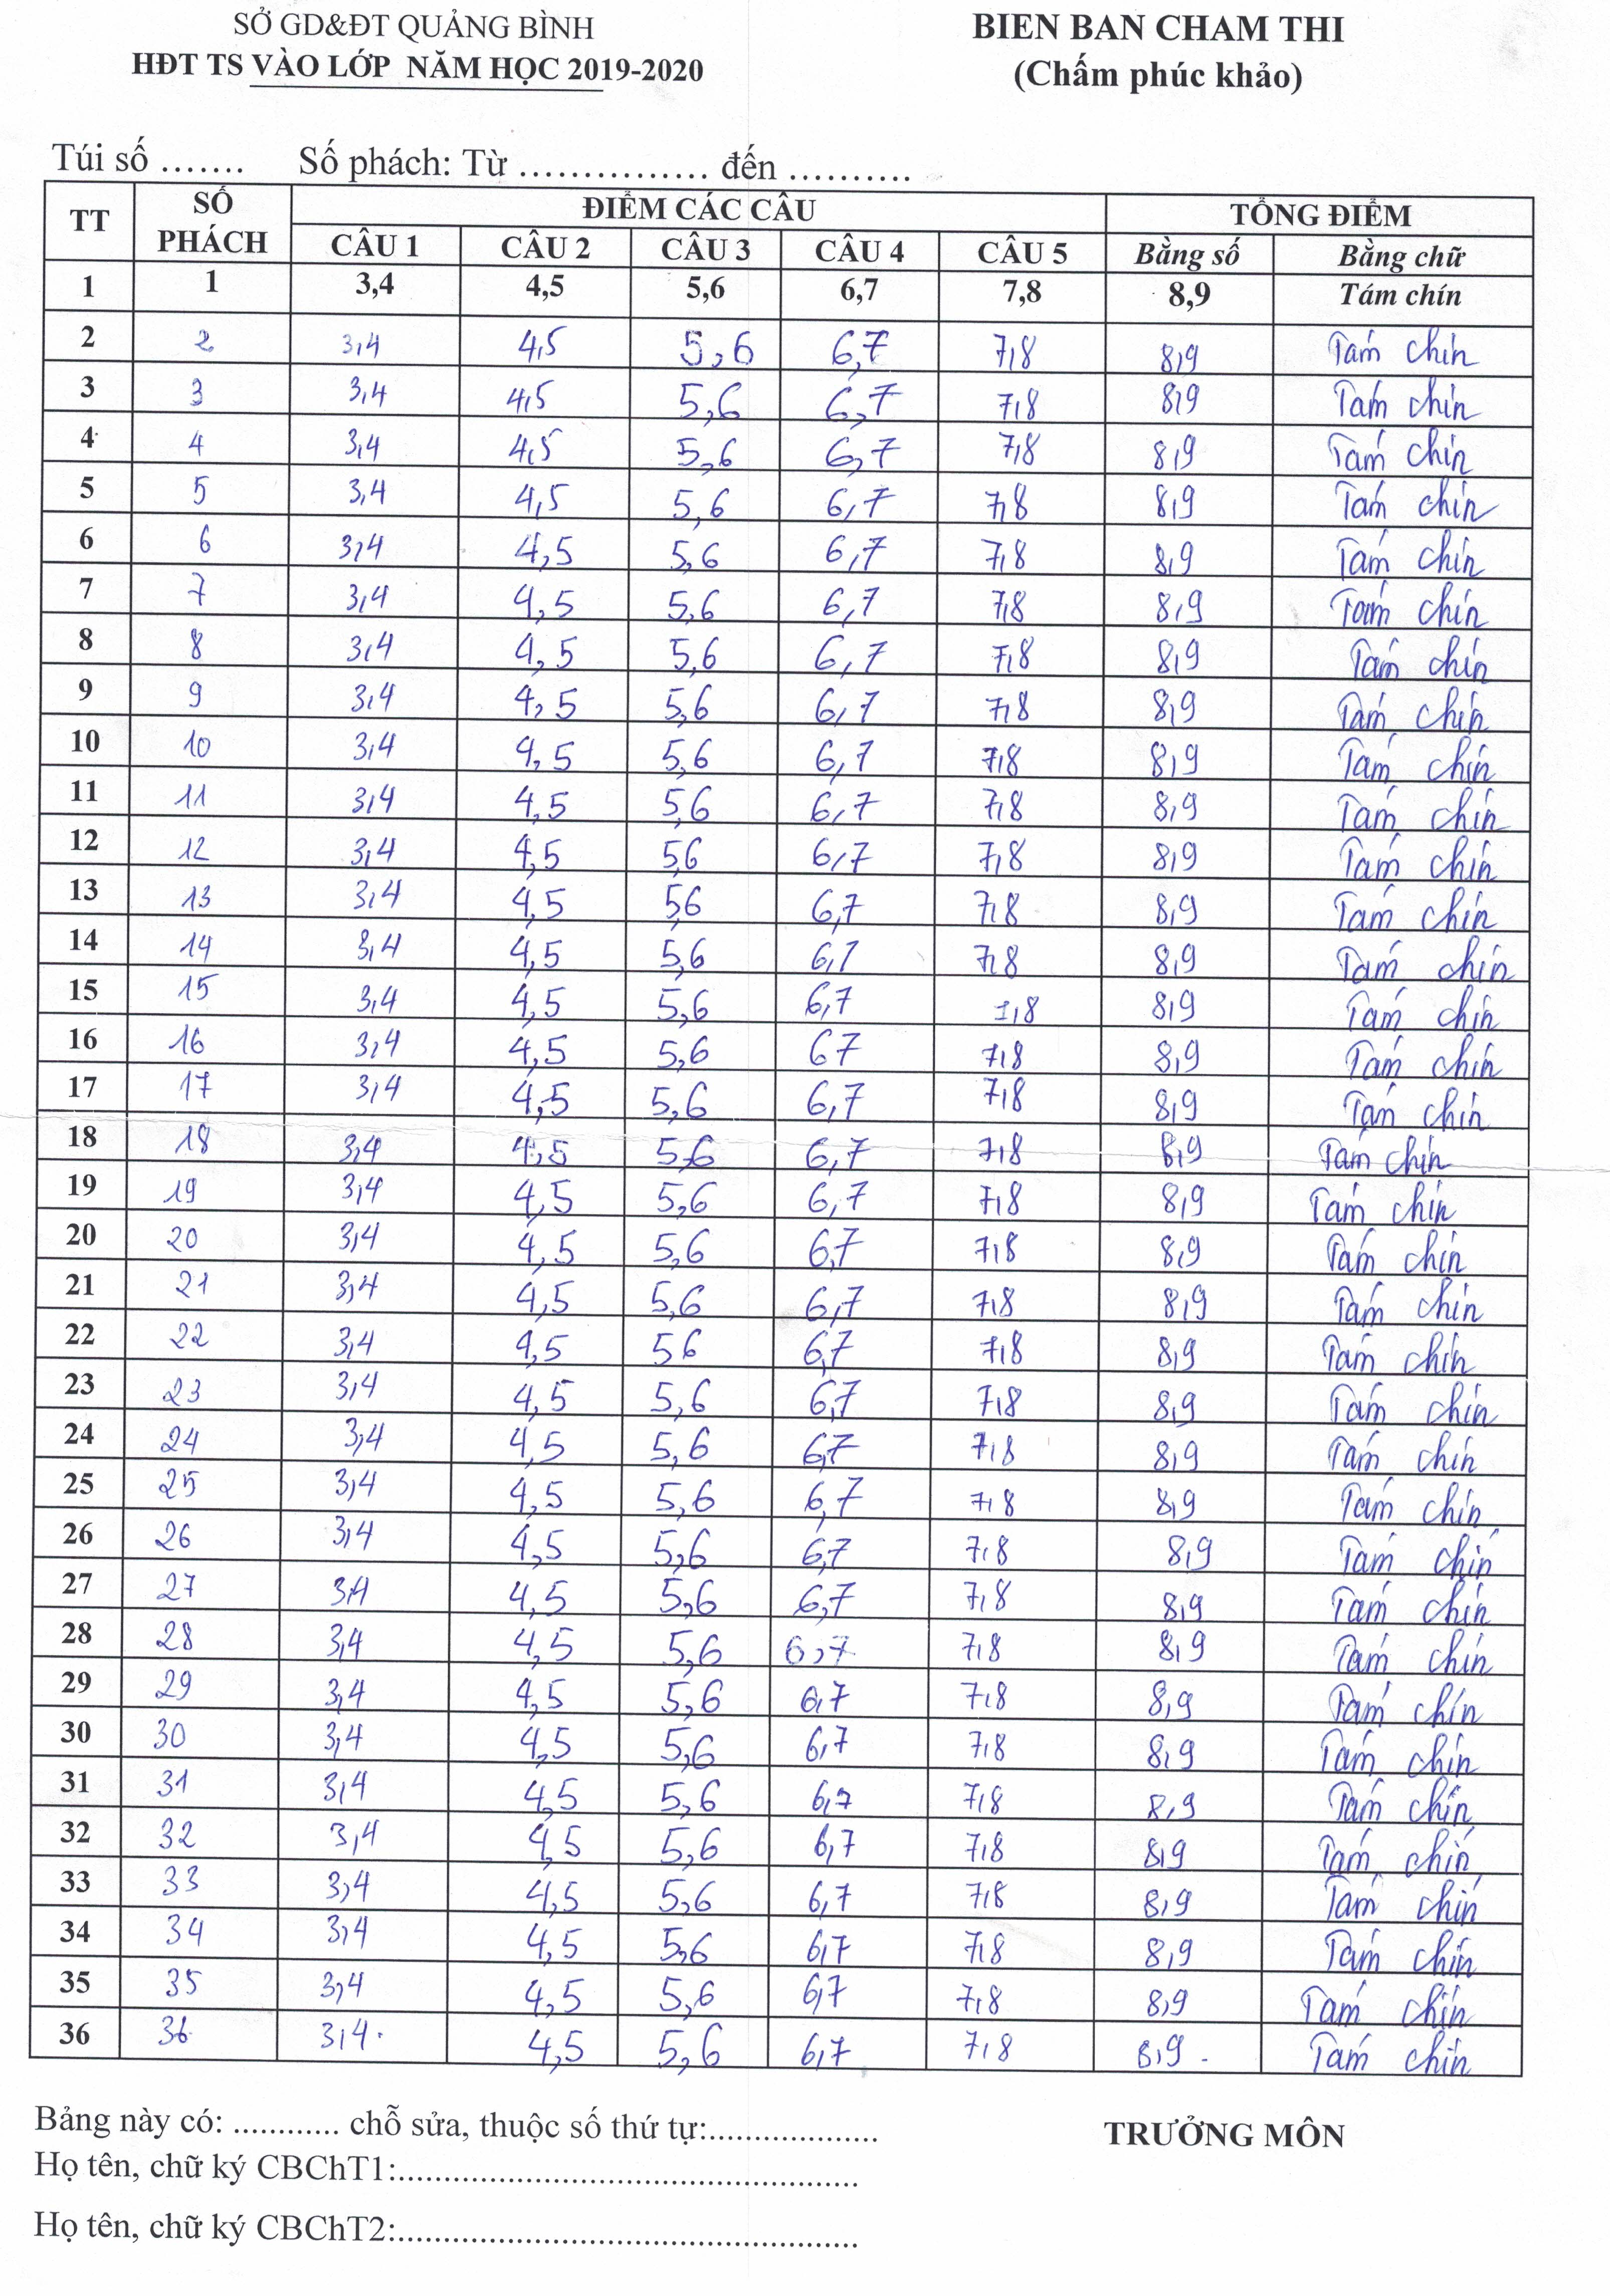 SỞ GD&ĐT QUẢNG BÌNH
BIEN BAN CHAM THI
HĐT TS VÀO LỚP NĂM HỌC 2019-2020
(Chấm phúc khảo)
Túi số ....... Số phách: Từ ............... đến ..........
TT SỐ PHÁCH ĐIỂM CÁC CÂU TỔNG ĐIỂM
CÂU 1 CÂU 2 CÂU 3 CÂU 4 CÂU 5 Bằng số Bằng chữ
1 1 3,4 4,5 5,6 6,7 7,8 8,9 Tám chín
2 2 3,4 4,5 5,6 6,7 7,8 8,9 Tám chín
3 3 3,4 4,5 5,6 6,7 7,8 8,9 Tám chín
4 4 3,4 4,5 5,6 6,7 7,8 8,9 Tám chín
5 5 3,4 4,5 5,6 6,7 7,8 8,9 Tám chín
6 6 3,4 4,5 5,6 6,7 7,8 8,9 Tám chín
7 7 3,4 4,5 5,6 6,7 7,8 8,9 Tám chín
8 8 3,4 4,5 5,6 6,7 7,8 8,9 Tám chín
9 9 3,4 4,5 5,6 6,7 7,8 8,9 Tám chín
10 10 3,4 4,5 5,6 6,7 7,8 8,9 Tám chín
11 11 3,4 4,5 5,6 6,7 7,8 8,9 Tám chín
12 12 3,4 4,5 5,6 6,7 7,8 8,9 Tám chín
13 13 3,4 4,5 5,6 6,7 7,8 8,9 Tám chín
14 14 3,4 4,5 5,6 6,7 7,8 8,9 Tám chín
15 15 3,4 4,5 5,6 6,7 7,8 8,9 Tám chín
16 16 3,4 4,5 5,6 67 7,8 8,9 Tám chín
17 17 3,4 4,5 5,6 6,7 7,8 8,9 Tám chín
18 18 3,4 4,5 5,6 6,7 7,8 8,9 Tám chín
19 19 3,4 4,5 5,6 6,7 7,8 8,9 Tám chín
20 20 3,4 4,5 5,6 6,7 7,8 8,9 Tám chín
21 21 3,4 4,5 5,6 6,7 7,8 8,9 Tám chín
22 22 3,4 4,5 56 6,7 7,8 8,9 Tám chín
23 23 3,4 4,5 5,6 6,7 7,8 8,9 Tám chín
24 24 3,4 4,5 5,6 6,7 7,8 8,9 Tám chín
25 25 3,4 4,5 5,6 6,7 7,8 8,9 Tám chín
26 26 3,4 4,5 5,6 6,7 7,8 8,9 Tám chín
27 27 3,4 4,5 5,6 6,7 7,8 8,9 Tám chín
28 28 3,4 4,5 5,6 6,7 7,8 8,9 Tám chín
29 29 3,4 4,5 5,6 6,7 7,8 8,9 Tám chín
30 30 3,4 4,5 5,6 6,7 7,8 8,9 Tám chín
31 31 3,4 4,5 5,6 6,7 7,8 8,9 Tám chín
32 32 3,4 4,5 5,6 6,7 7,8 8,9 Tám chín
33 33 3,4 4,5 5,6 6,7 7,8 8,9 Tám chín
34 34 3,4 4,5 5,6 6,7 7,8 8,9 Tám chín
35 35 3,4 4,5 5,6 6,7 7,8 8,9 Tám chín
36 36 3,4. 4,5 5,6 6,7 7,8 8,9. Tám chín
Bảng này có: ............ chỗ sửa, thuộc số thứ tự:...................
TRƯỞNG MÔN
Họ tên, chữ ký CBChT1:....................................................
Họ tên, chữ ký CBChT2:....................................................